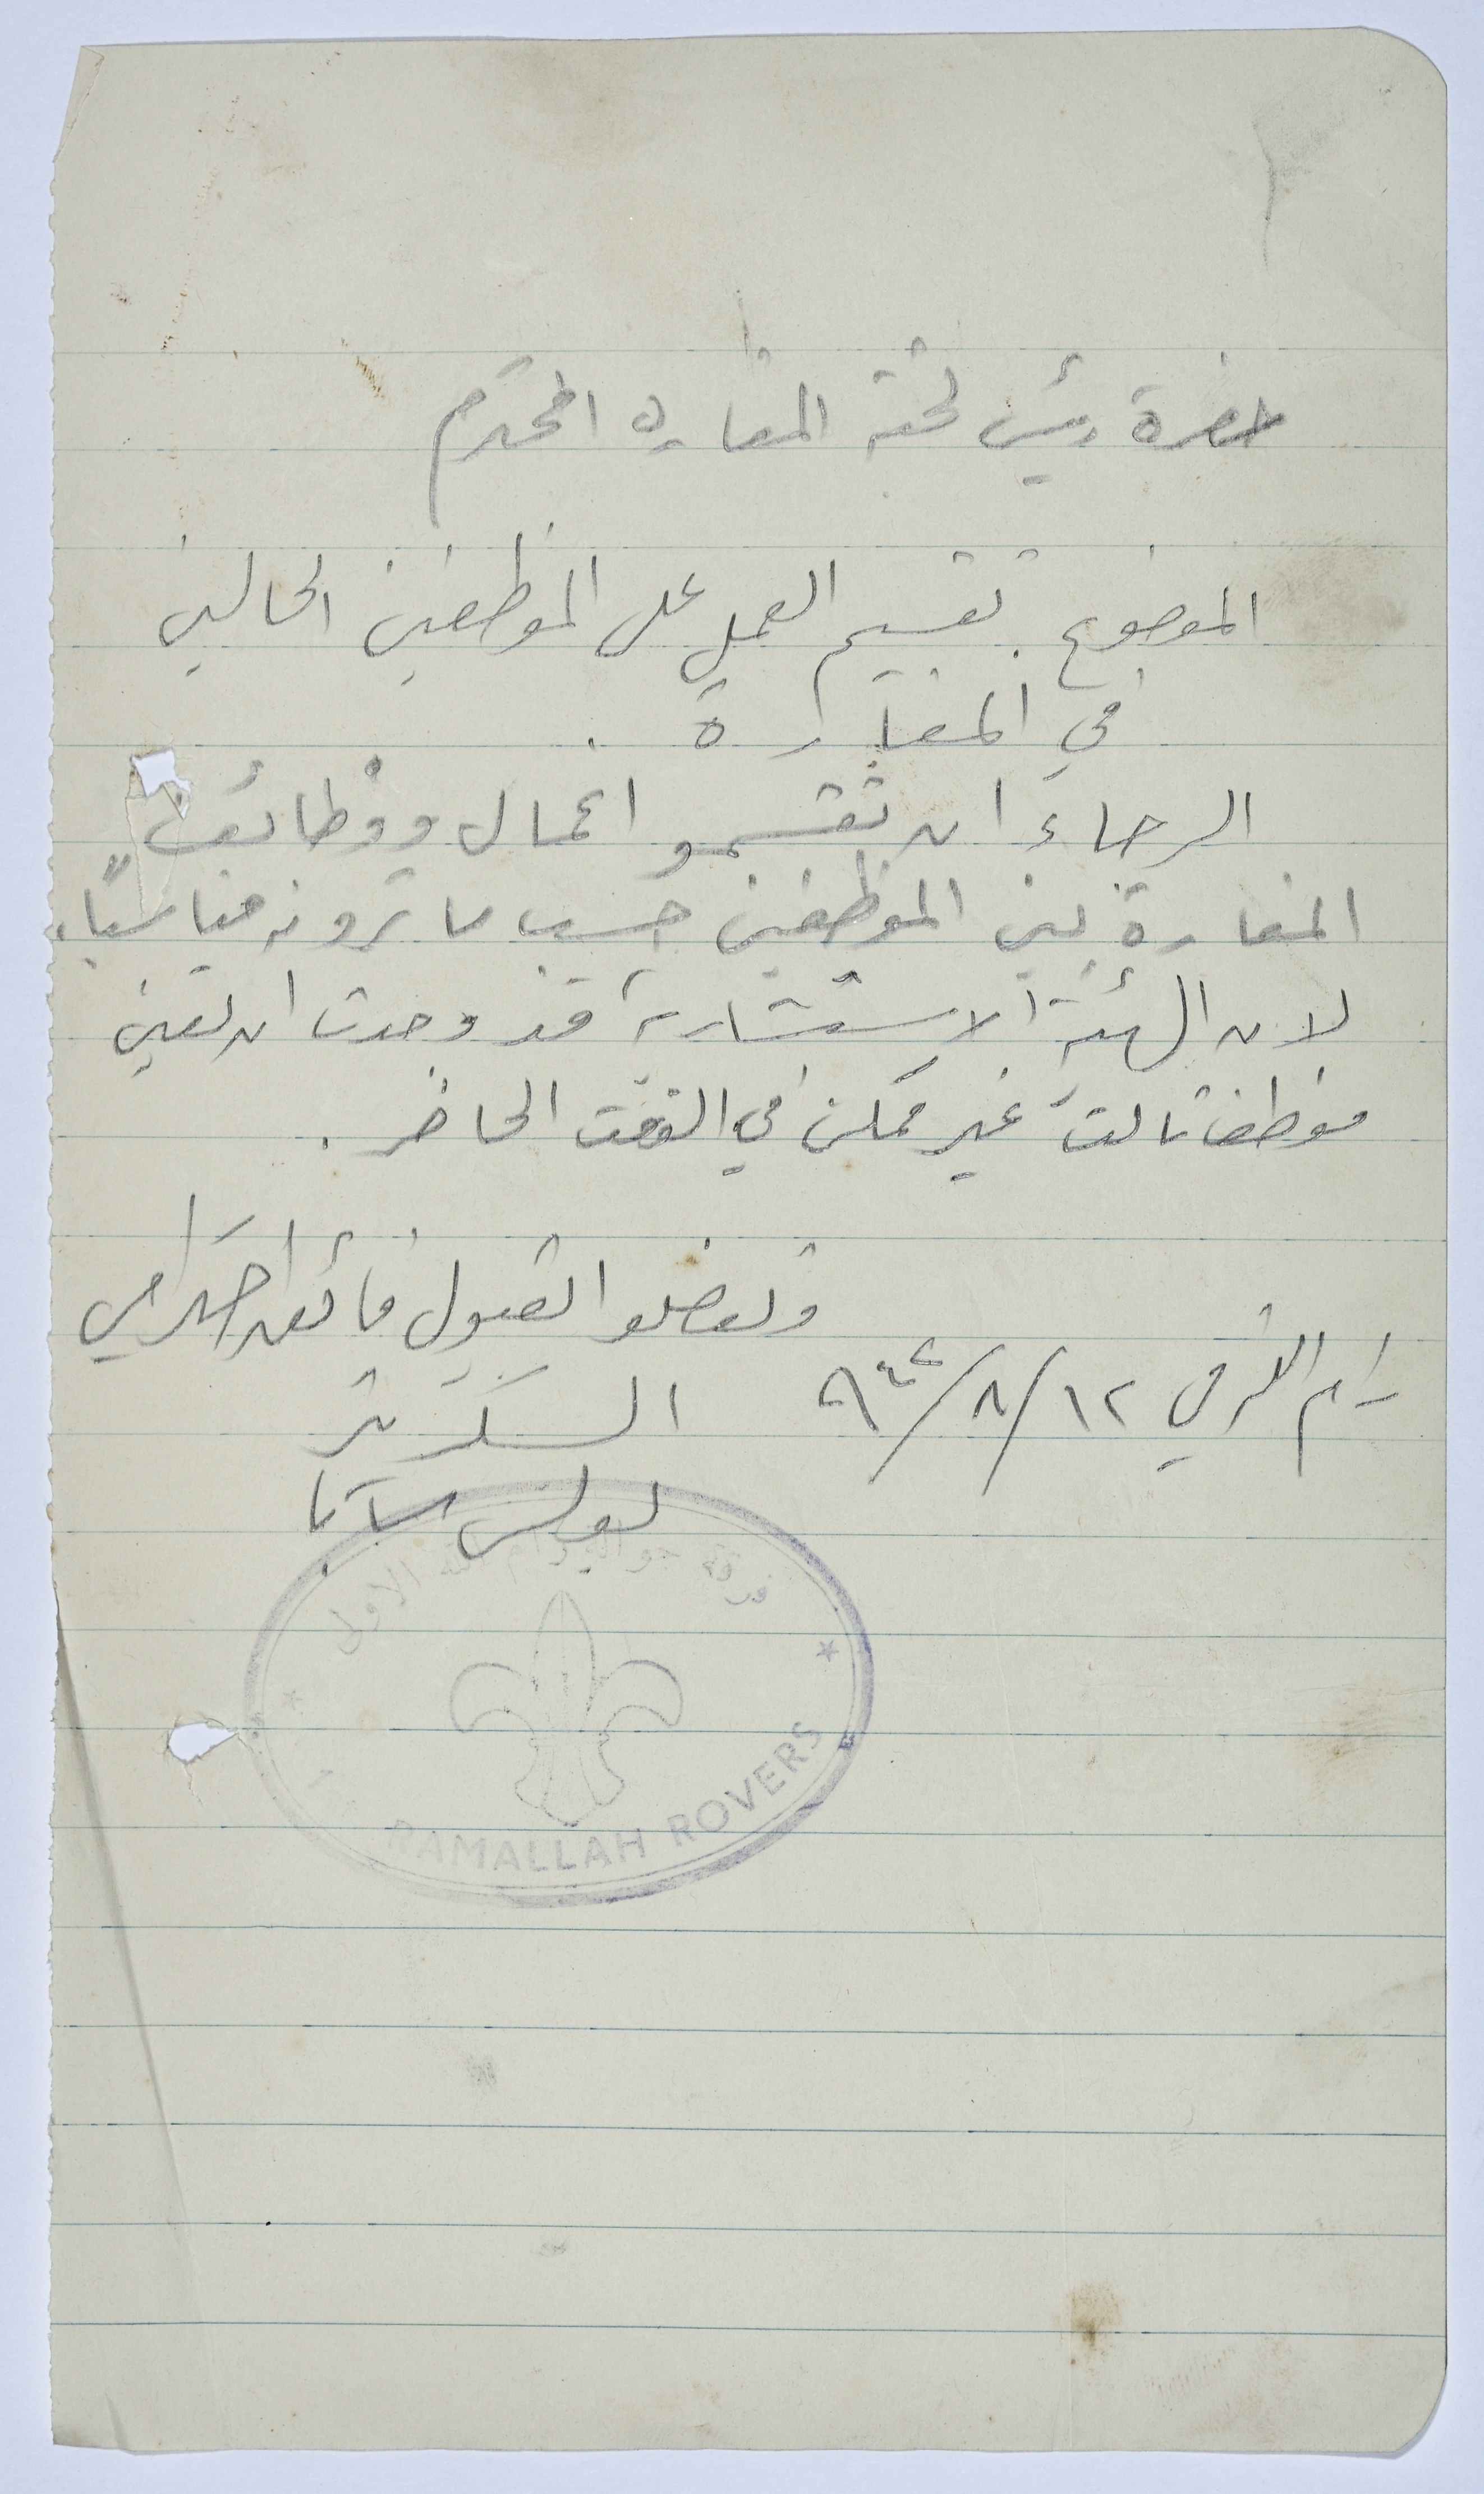 حضرة رئيس لجنة المغاره المحترم
الموضوع. تقسيم العمل على الموظفين الحاليين
في المغارة .
الرجاء ان تقسمو اعمال ووظائف
المغارة بين الموظفين حسب ما ترونه مناسباً.
لان الهيئة الاستشارية قد وجدت ان تعين
موظف ثالث غير ممكن في الوقت الحاضر .
وتفضلوا بقبول فائق احترامي
رام الله في ١٢/٨/٩٤٤
السكرتير
فرقة جوالة رام الله الاولى
RAMALLAH ROVERS